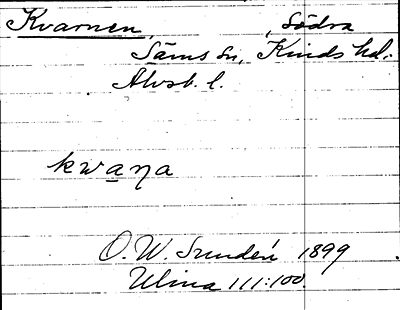 Kvarnen, , Södra
Säms sn, Kinds hd.
Älvsb. l.
kwaŋa
O. W. Sundén 1899
Ulma 111:100.